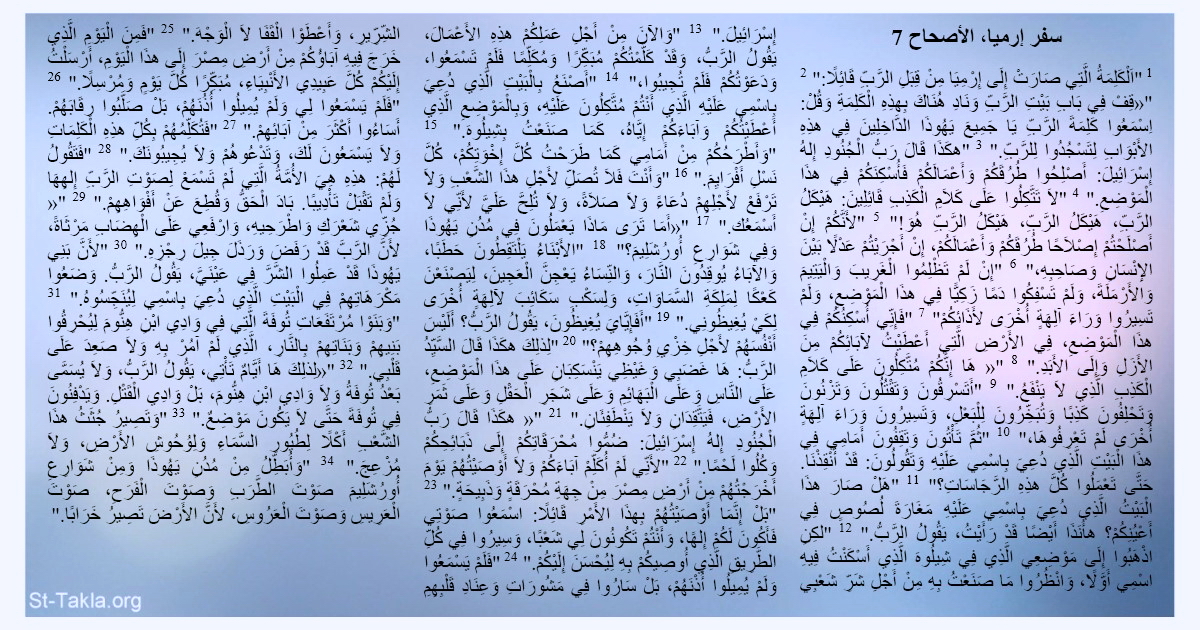 سفر إرميا، الأصحاح 7
1 "اَلْكَلِمَةُ الَّتِي صَارَتْ إِلَى إِرْمِيَا مِنْ قِبَلِ الرَّبِّ قَائِلًا:" 2
"«قِفْ فِي بَابِ بَيْتِ الرَّبِّ وَنَادِ هُنَاكَ بِهذِهِ الْكَلِمَةِ وَقُلْ:
اِسْمَعُوا كَلِمَةَ الرَّبِّ يَا جَمِيعَ يَهُوذَا الدَّاخِلِينَ فِي هذِهِ
الأَبْوَابِ لِتَسْجُدُوا لِلرَّبِّ." 3 "هكَذَا قَالَ رَبُّ الْجُنُودِ إِلهُ
إِسْرَائِيلَ: أَصْلِحُوا طُرُقَكُمْ وَأَعْمَالَكُمْ فَأُسْكِنَكُمْ فِي هذَا
الْمَوْضِعِ." 4 "لاَ تَتَّكِلُوا عَلَى كَلاَمِ الْكَذِبِ قَائِلِينَ: هَيْكَلُ
الرَّبِّ، هَيْكَلُ الرَّبِّ، هَيْكَلُ الرَّبِّ هُوَ!" 5 "لأَنَّكُمْ إِنْ
أَصْلَحْتُمْ إِصْلاَحًا طُرُقَكُمْ وَأَعْمَالَكُمْ، إِنْ أَجْرَيْتُمْ عَدْلًا بَيْنَ
الإِنْسَانِ وَصَاحِبِهِ،" 6 "إِنْ لَمْ تَظْلِمُوا الْغَرِيبَ وَالْيَتِيمَ
وَالأَرْمَلَةَ، وَلَمْ تَسْفِكُوا دَمًا زَكِيًّا فِي هذَا الْمَوْضِعِ، وَلَمْ
تَسِيرُوا وَرَاءَ آلِهَةٍ أُخْرَى لأَذَائِكُمْ" 7 "فَإِنِّي أُسْكِنُكُمْ فِي
هذَا الْمَوْضِعِ، فِي الأَرْضِ الَّتِي أَعْطَيْتُ لآبَائِكُمْ مِنَ
الأَزَلِ وَإِلَى الأَبَدِ." 8 "« هَا إِنَّكُمْ مُتَّكِلُونَ عَلَى كَلاَمِ
الْكَذِبِ الَّذِي لاَ يَنْفَعُ." 9 "أَتَسْرِقُونَ وَتَقْتُلُونَ وَتَزْنُونَ
وَتَحْلِفُونَ كَذِبًا وَتُبَخِّرُونَ لِلْبَعْلِ، وَتَسِيرُونَ وَرَاءَ آلِهَةٍ
أُخْرَى لَمْ تَعْرِفُوهَا،" 10 "ثُمَّ تَأْتُونَ وَتَقِفُونَ أَمَامِي فِي
هذَا الْبَيْتِ الَّذِي دُعِيَ بِاسْمِي عَلَيْهِ وَتَقُولُونَ: قَدْ أُنْقِذْنَا.
حَتَّى تَعْمَلُوا كُلَّ هذِهِ الرَّجَاسَاتِ؟" 11 "هَلْ صَارَ هذَا
الْبَيْتُ الَّذِي دُعِيَ بِاسْمِي عَلَيْهِ مَغَارَةَ لُصُوصٍ فِي
أَعْيُنِكُمْ؟ هأَنَذَا أَيْضًا قَدْ رَأَيْتُ، يَقُولُ الرَّبُّ." 12 "لكِنِ
اذْهَبُوا إِلَى مَوْضِعِي الَّذِي فِي شِيلُوهَ الَّذِي أَسْكَنْتُ فِيهِ
اسْمِي أَوَّلًا، وَانْظُرُوا مَا صَنَعْتُ بِهِ مِنْ أَجْلِ شَرِّ شَعْبِي
إِسْرَائِيلَ." 13 "وَالآنَ مِنْ أَجْلِ عَمَلِكُمْ هذِهِ الأَعْمَالَ،
يَقُولُ الرَّبُّ، وَقَدْ كَلَّمْتُكُمْ مُبَكِّرًا وَمُكَلِّمًا فَلَمْ تَسْمَعُوا،
وَدَعَوْتُكُمْ فَلَمْ تُجِيبُوا،" 14 "أَصْنَعُ بِالْبَيْتِ الَّذِي دُعِيَ
بِاسْمِي عَلَيْهِ الَّذِي أَنْتُمْ مُتَّكِلُونَ عَلَيْهِ، وَبِالْمَوْضِعِ الَّذِي
أَعْطَيْتُكُمْ وَآبَاءَكُمْ إِيَّاهُ، كَمَا صَنَعْتُ بِشِيلُوهَ." 15
"وَأَطْرَحُكُمْ مِنْ أَمَامِي كَمَا طَرَحْتُ كُلَّ إِخْوَتِكُمْ، كُلَّ
نَسْلِ أَفْرَايِمَ." 16 "وَأَنْتَ فَلاَ تُصَلِّ لأَجْلِ هذَا الشَّعْبِ وَلاَ
تَرْفَعْ لأَجْلِهِمْ دُعَاءً وَلاَ صَلاَةً، وَلاَ تُلِحَّ عَلَيَّ لأَنِّي لاَ
أَسْمَعُكَ." 17 "«أَمَا تَرَى مَاذَا يَعْمَلُونَ فِي مُدُنِ يَهُوذَا
وَفِي شَوَارِعِ أُورُشَلِيمَ؟" 18 "الأَبْنَاءُ يَلْتَقِطُونَ حَطَبًا،
وَالآبَاءُ يُوقِدُونَ النَّارَ، وَالنِّسَاءُ يَعْجِنَّ الْعَجِينَ، لِيَصْنَعْنَ
كَعْكًا لِمَلِكَةِ السَّمَاوَاتِ، وَلِسَكْبِ سَكَائِبَ لآلِهَةٍ أُخْرَى
لِكَيْ يُغِيظُونِي." 19 "أَفَإِيَّايَ يُغِيظُونَ، يَقُولُ الرَّبُّ؟ أَلَيْسَ
أَنْفُسَهُمْ لأَجْلِ خِزْيِ وُجُوهِهِمْ؟" 20 "لِذلِكَ هكَذَا قَالَ السَّيِّدُ
الرَّبُّ: هَا غَضَبِي وَغَيْظِي يَنْسَكِبَانِ عَلَى هذَا الْمَوْضِعِ،
عَلَى النَّاسِ وَعَلَى الْبَهَائِمِ وَعَلَى شَجَرِ الْحَقْلِ وَعَلَى ثَمَرِ
الأَرْضِ، فَيَتَّقِدَانِ وَلاَ يَنْطَفِئَانِ." 21 "« هكَذَا قَالَ رَبُّ
الْجُنُودِ إِلهُ إِسْرَائِيلَ: ضُمُّوا مُحْرَقَاتِكُمْ إِلَى ذَبَائِحِكُمْ
وَكُلُوا لَحْمًا." 22 "لأَنِّي لَمْ أُكَلِّمْ آبَاءَكُمْ وَلاَ أَوْصَيْتُهُمْ يَوْمَ
أَخْرَجْتُهُمْ مِنْ أَرْضِ مِصْرَ مِنْ جِهَةِ مُحْرَقَةٍ وَذَبِيحَةٍ." 23
"بَلْ إِنَّمَا أَوْصَيْتُهُمْ بِهذَا الأَمْرِ قَائِلًا: اسْمَعُوا صَوْتِي
فَأَكُونَ لَكُمْ إِلهًا، وَأَنْتُمْ تَكُونُونَ لِي شَعْبًا، وَسِيرُوا فِي كُلِّ
الطَّرِيقِ الَّذِي أُوصِيكُمْ بِهِ لِيُحْسَنَ إِلَيْكُمْ." 24 "فَلَمْ يَسْمَعُوا
وَلَمْ يُمِيلُوا أُذْنَهُمْ، بَلْ سَارُوا فِي مَشُورَاتِ وَعِنَادِ قَلْبِهِمِ
الشِّرِّيرِ، وَأَعْطَوْا الْقَفَا لاَ الْوَجْهَ." 25 "فَمِنَ الْيَوْمِ الَّذِي
خَرَجَ فِيهِ آبَاؤُكُمْ مِنْ أَرْضِ مِصْرَ إِلَى هذَا الْيَوْمِ، أَرْسَلْتُ
إِلَيْكُمْ كُلَّ عَبِيدِي الأَنْبِيَاءِ، مُبَكِّرًا كُلَّ يَوْمٍ وَمُرْسِلًا." 26
"فَلَمْ يَسْمَعُوا لِي وَلَمْ يُمِيلُوا أُذُنَهُمْ، بَلْ صَلَّبُوا رِقَابَهُمْ.
أَسَاءُوا أَكْثَرَ مِنْ آبَائِهِمْ." 27 "فَتُكَلِّمُهُمْ بِكُلِّ هذِهِ الْكَلِمَاتِ
وَلاَ يَسْمَعُونَ لَكَ، وَتَدْعُوهُمْ وَلاَ يُجِيبُونَكَ." 28 "فَتَقُولُ
لَهُمْ: هذِهِ هِيَ الأُمَّةُ الَّتِي لَمْ تَسْمَعْ لِصَوْتِ الرَّبِّ إِلهِهَا
وَلَمْ تَقْبَلْ تَأْدِيبًا. بَادَ الْحَقُّ وَقُطِعَ عَنْ أَفْوَاهِهِمْ." 29 "«
جُزِّي شَعْرَكِ وَاطْرَحِيهِ، وَارْفَعِي عَلَى الْهِضَابِ مَرْثَاةً،
لأَنَّ الرَّبَّ قَدْ رَفَضَ وَرَذَلَ جِيلَ رِجْزِهِ." 30 "لأَنَّ بَنِي
يَهُوذَا قَدْ عَمِلُوا الشَّرَّ فِي عَيْنَيَّ، يَقُولُ الرَّبُّ. وَضَعُوا
مَكْرَهَاتِهِمْ فِي الْبَيْتِ الَّذِي دُعِيَ بِاسْمِي لِيُنَجِّسُوهُ." 31
"وَبَنَوْا مُرْتَفَعَاتِ تُوفَةَ الَّتِي فِي وَادِي ابْنِ هِنُّومَ لِيُحْرِقُوا
بَنِيهِمْ وَبَنَاتِهِمْ بِالنَّارِ، الَّذِي لَمْ آمُرْ بِهِ وَلاَ صَعِدَ عَلَى
قَلْبِي." 32 "«لِذلِكَ هَا أَيَّامٌ تَأْتِي، يَقُولُ الرَّبُّ، وَلاَ يُسَمَّى
بَعْدُ تُوفَةُ وَلاَ وَادِي ابْنِ هِنُّومَ، بَلْ وَادِي الْقَتْلِ. وَيَدْفِنُونَ
فِي تُوفَةَ حَتَّى لاَ يَكُونَ مَوْضِعٌ." 33 "وَتَصِيرُ جُثَثُ هذَا
الشَّعْبِ أُكْلًا لِطُيُورِ السَّمَاءِ وَلِوُحُوشِ الأَرْضِ، وَلاَ
مُزْعِجَ." 34 "وَأُبَطِّلُ مِنْ مُدُنِ يَهُوذَا وَمِنْ شَوَارِعِ
أُورُشَلِيمَ صَوْتَ الطَّرَبِ وَصَوْتَ الْفَرَحِ، صَوْتَ
الْعَرِيسِ وَصَوْتَ الْعَرُوسِ، لأَنَّ الأَرْضَ تَصِيرُ خَرَابًا."
St-Takla.org